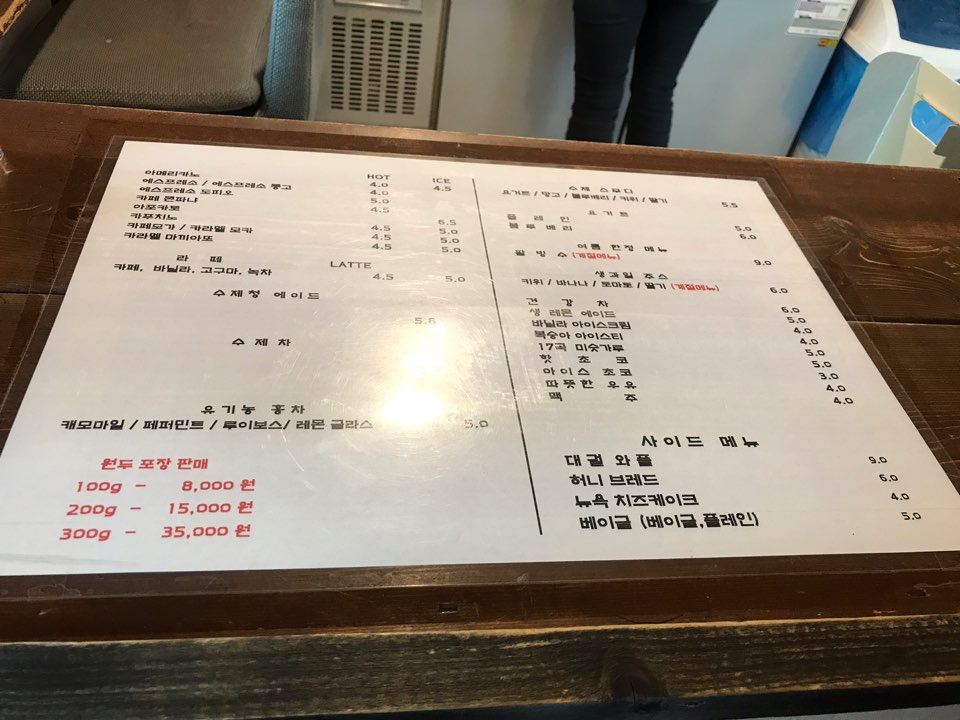 HOT ICE
아메리카노 4.0 4.5
에스프레소 / 에스프레소 룽고 4.0
에스프레소 도피오 5.0
카페 콘파냐 4.5
아포카토 6.5
카푸치노 4.5 5.0
카페모카 / 카라멜 모카 4.5 5.0
카라멜 마끼아또 4.5 5.0
라 떼 LATTE
카페, 바닐라, 고구마, 녹차 4.5 5.0
수제청 에이드
5.6
수 제 차
유기농 홍차
캐모마일 / 페퍼민트 / 루이보스/ 레몬 글라스 5.0
원두 포장 판매
100g - 8,000 원
200g - 15,000 원
300g - 35,000 원
수제 스무디
요거트 / 망고 / 블루베리 / 키위 / 딸기 5.5
플 레 인 요 거 트 5.0
블루베리 6.0
여름 한정 메뉴
팥 빙 수 (계절메뉴) 9.0
생과일 쥬스
키위 / 바나나 / 토마토 / 딸기 (계절메뉴) 6.0
건 강 차 6.0
생 레몬 에이드 5.0
바닐라 아이스크림 4.0
복숭아 아이스티 4.0
17곡 미숫가루 5.0
핫 초 코 5.0
아이스 초코 3.0
따뜻한 우유 4.0
맥 주 4.0
사이드 메뉴
대궐 와플 9.0
허니 브레드 6.0
뉴욕 치즈케이크 4.0
베이글 (베이글,플레인) 5.0